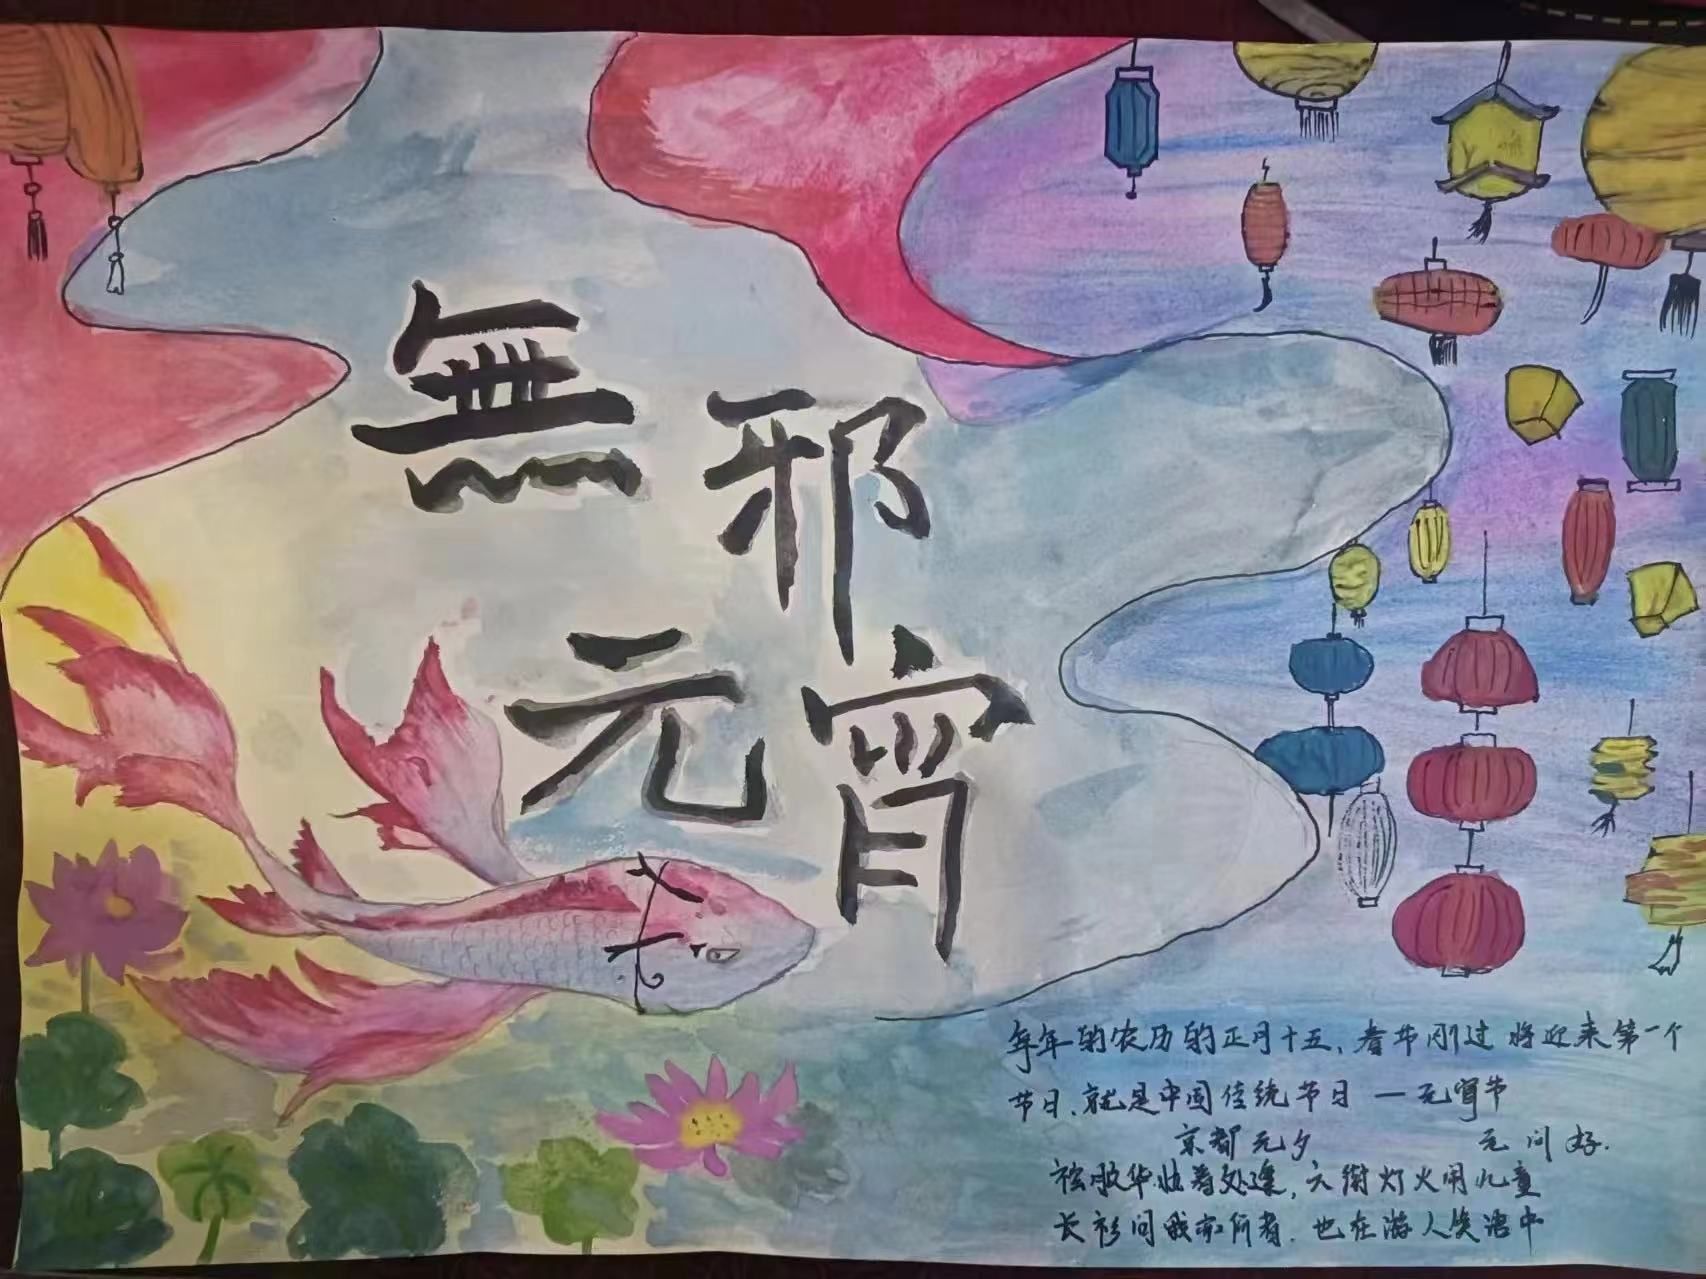 無邪
元宵
每年的农历的正月十五、春节刚过 将迎来第一个
节日、就是中国传统节日 一元宵节
京都元夕 元问好.
袨服华妆着处逢,六街灯火闹儿童
长衫问我何者.也在游人笑语中